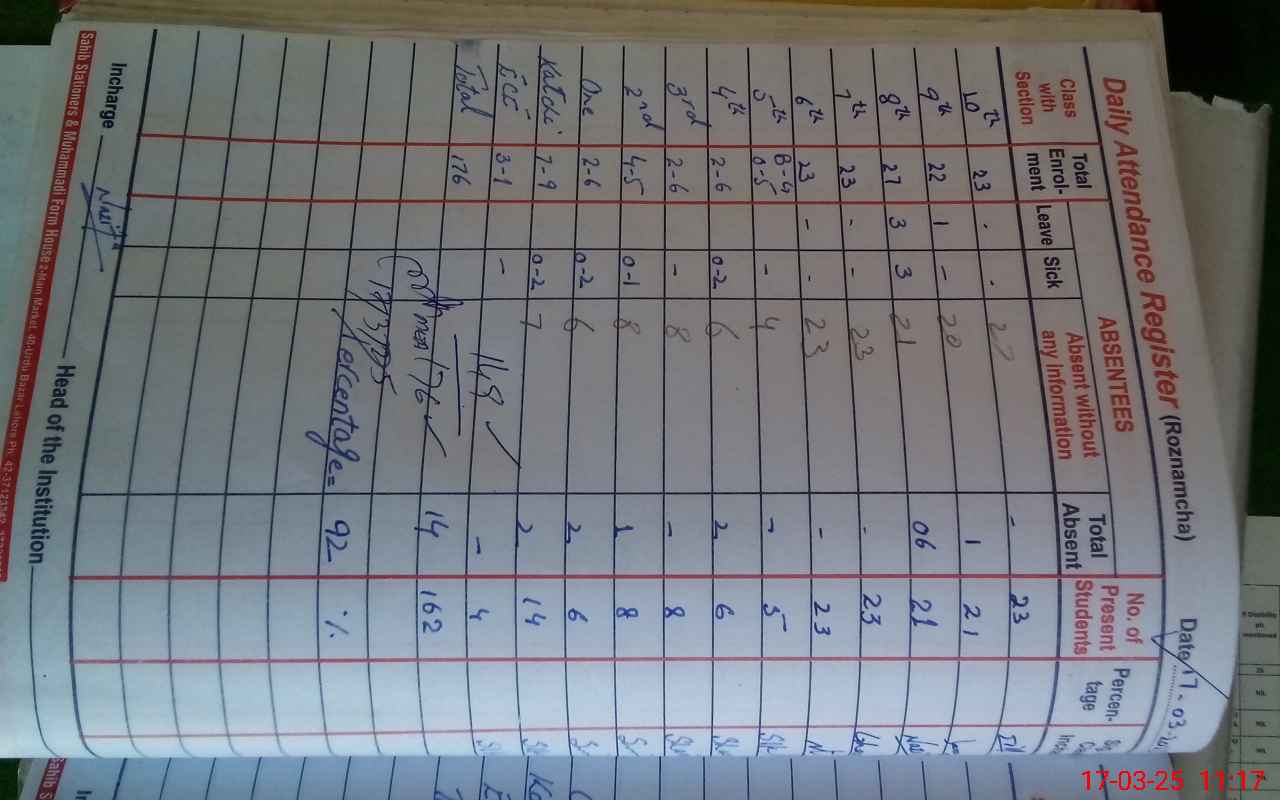 Daily Attendance Register (Roznamcha) Date 17-03-
Class with Section Total Enrol- ment ABSENTEES Leave Sick Absent without any Information Total Absent No. of Present Students Percen- tage
10th 23 - - 22 - 23
9th 22 1 - 20 1 21
8th 27 3 3 21 06 21
7th 23 - - 23 - 23
6th 23 - - 23 - 23
5th B-G 0-5 - 4 - 5
4th 2-6 0-2 6 2 6
3rd 2-6 - 8 - 8
2nd 4-5 0-1 8 1 8
One 2-6 0-2 6 2 6
Katchi 7-9 0-2 7 2 14
ECE 3-1 - - 4
149 ✓
Total 176 176 ✓ 14 162
17/3/25
Percentage = 92 %
Incharge Head of the Institution
Sahib Stationers & Muhammadi Form House 2-Main Market, 40-Urdu Bazar Lahore Ph: 42-37123342
17-03-25 11:17